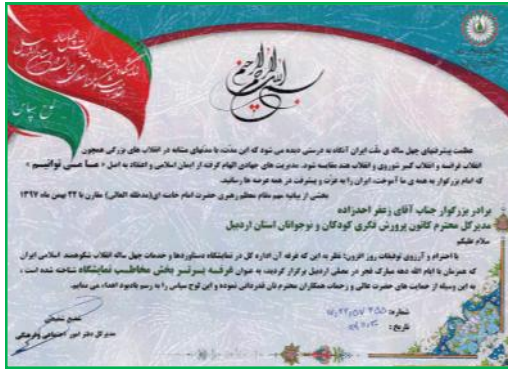 بسم الله الرحمن الرحیم
لوح سپاس
عظمت پیشرفتهای چهل ساله ی ملت ایران آنگاه به درستی دیده می شود که این مدت، با مدتهای مشابه در انقلاب های بزرگی همچون
انقلاب فرانسه و انقلاب کبیر شوروی و انقلاب هند مقایسه شود. مدیریت های جهادی الهام گرفته از ایمان اسلامی و اعتقاد به اصل « ما می توانیم »
که امام بزرگوار به همه ی ما آموخت، ایران را به عزت و پیشرفت در همه عرصه ها رسانید.
بخشی از بیانیه مهم مقام معظم رهبری حضرت امام خامنه ای(مدظله العالی) مقارن با ۲۲ بهمن ماه ۱۳۹۷
برادر بزرگوار جناب آقای زعفر احدزاده
مدیرکل محترم کانون پرورش فکری کودکان و نوجوانان استان اردبیل
سلام علیکم
با احترام و آرزوی توفیقات روز افزون؛ نظر به این که غرفه آن اداره کل در نمایشگاه دستاوردها و خدمات چهل ساله انقلاب شکوهمند اسلامی ایران
که همزمان با ایام الله دهه مبارک فجر در مصلی اردبیل برگزار گردید، به عنوان غرفه برتر بخش مخاطب نمایشگاه شناخته شده است ،
به این وسیله از حمایت های حضرت عالی و زحمات همکاران محترم تان قدردانی نموده و این لوح سپاس را به رسم یادبود اهداء می نمایم.
شماره:
تاریخ:
مدیرکل دفتر امور اجتماعی و فرهنگی